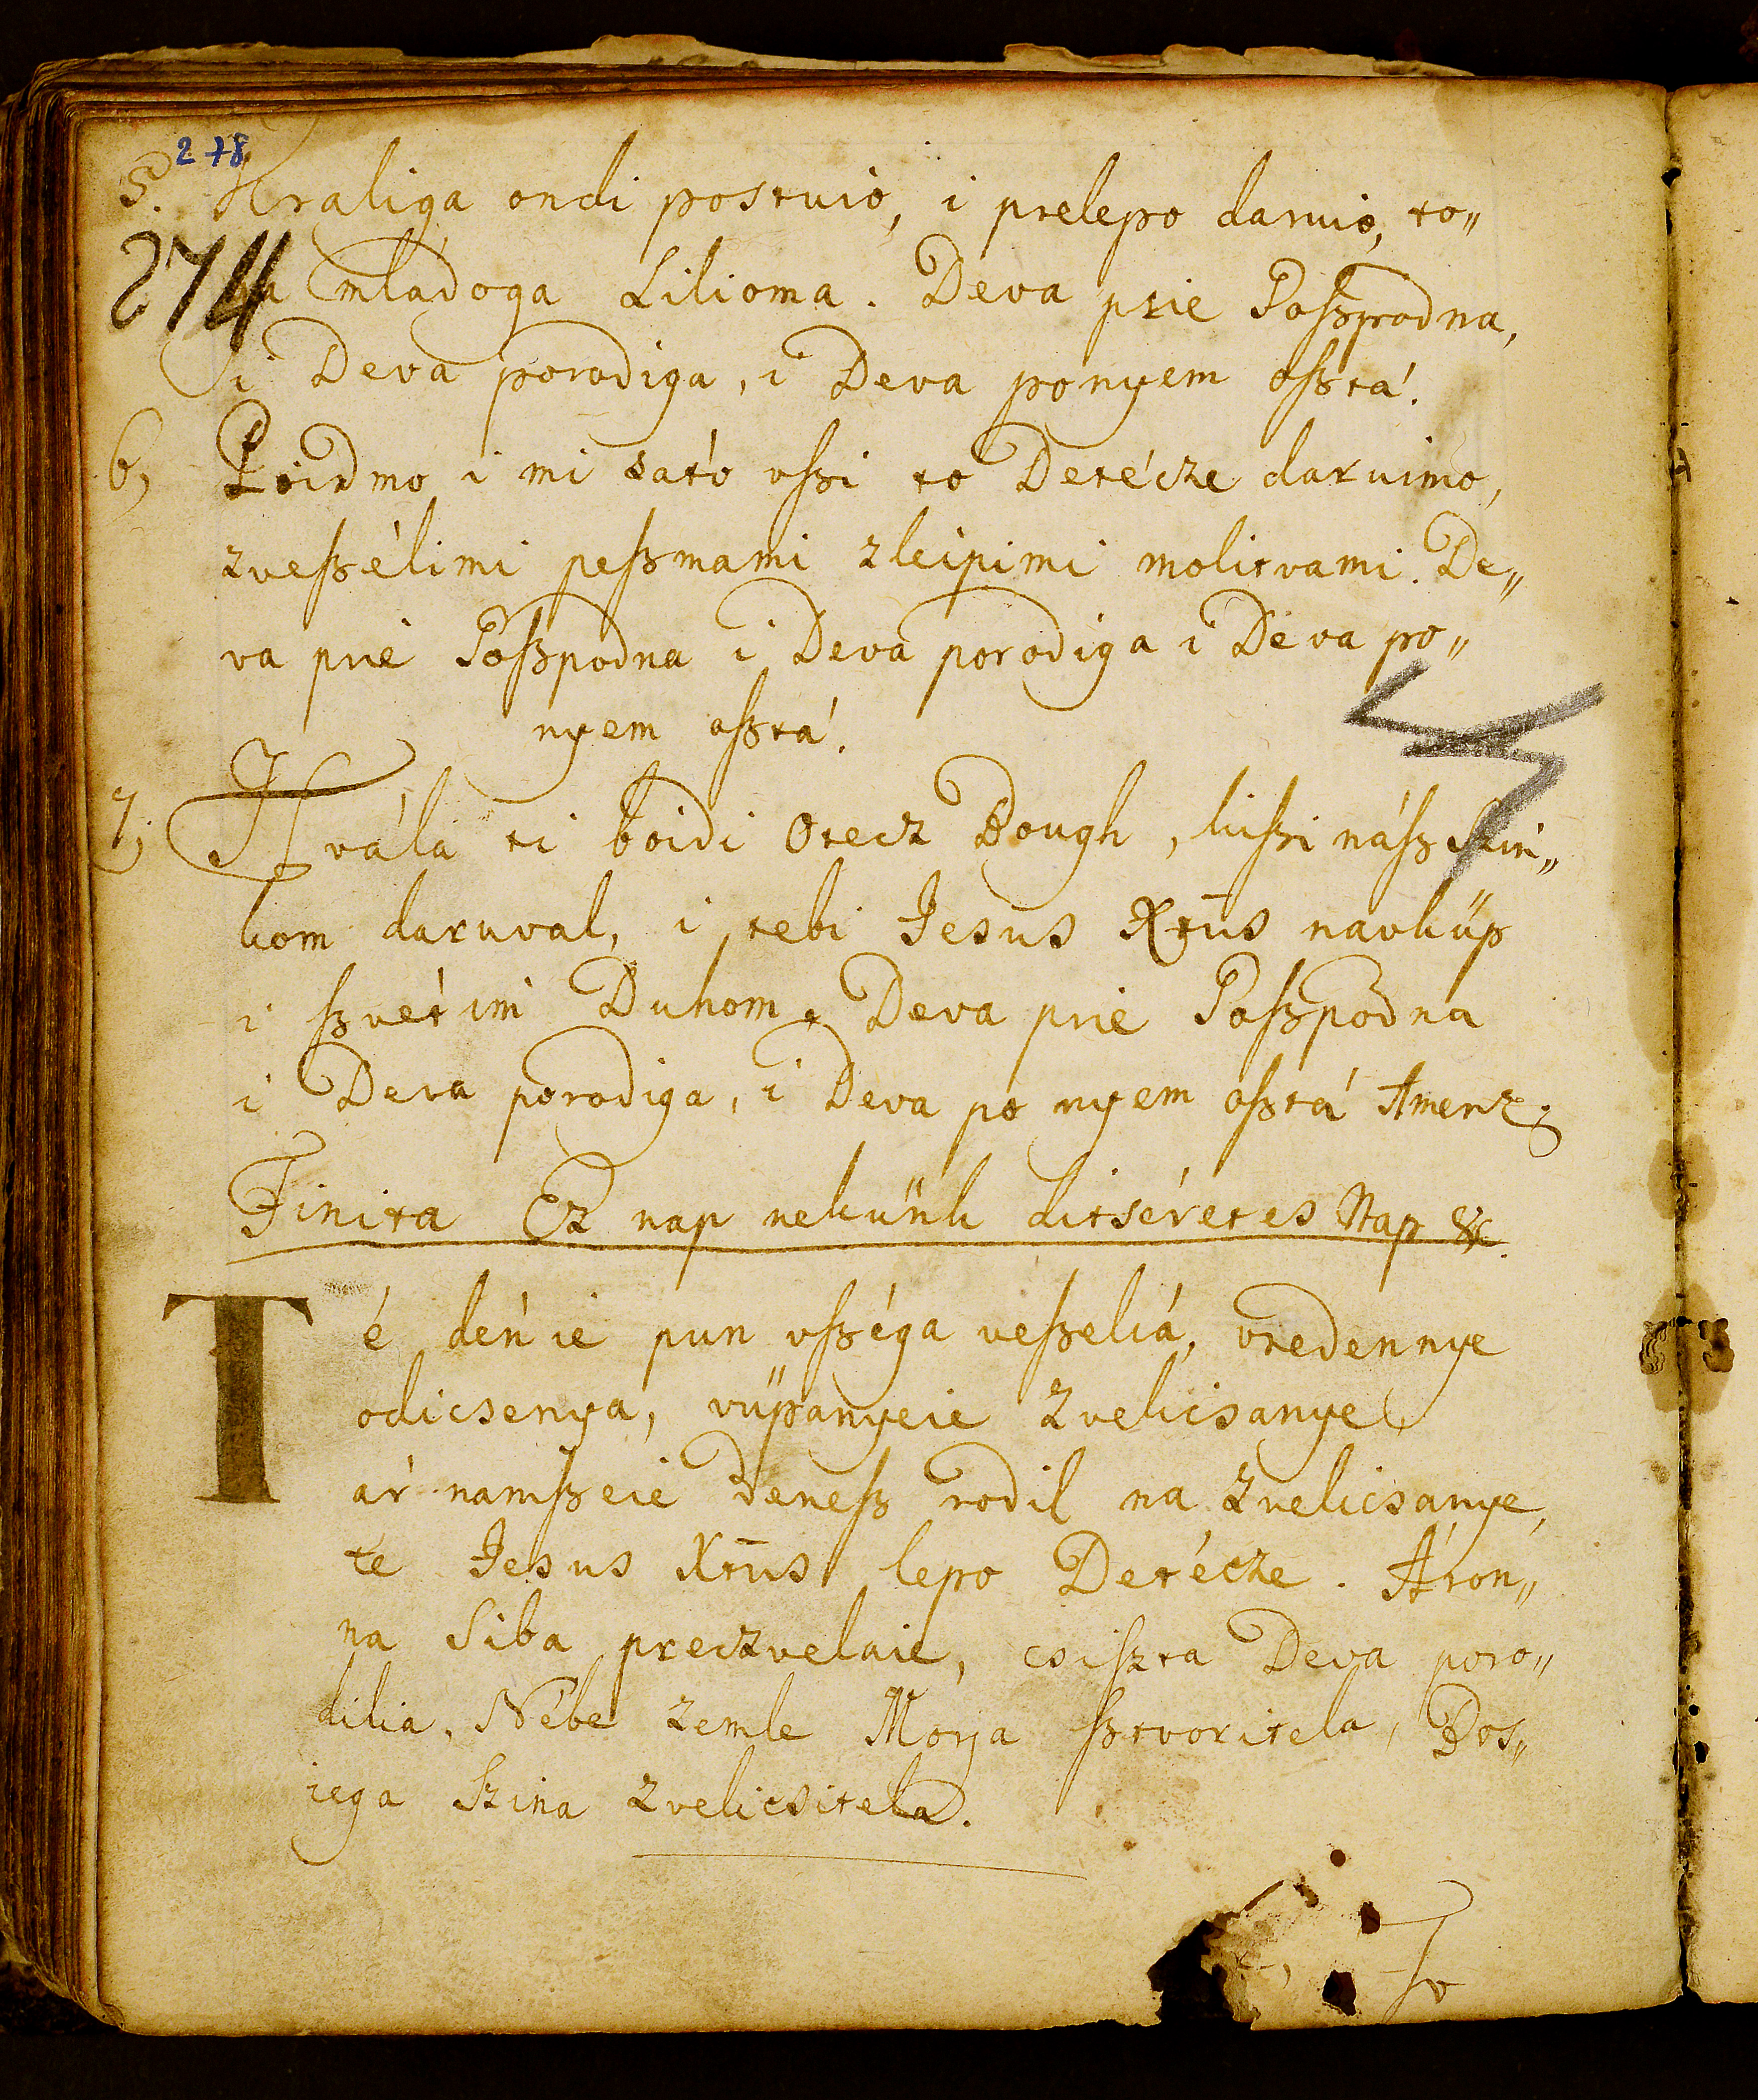 278
5. Kraliga ondi postuió, i prelepo daruió, to„
274 ga mládoga Lilioma. Deva prie Poßpodna,
i Deva porodiga, i Deva ponyem oßtá.
6, Poidmo i mi zató vßi to Detécze daruimo,
zveßélimi peßmami zleipimi molitvami. De„
va prie Poßpodna i Deva porodiga i Deva po„
nyem oßtá.
7, Hvála ti boidi Otecz Bough, kißi náß Szin„
kom daruval, i tebi Jesus Xtus navküp
i ßvétim Duhom. Deva prie Poßpodna
i Deva porodiga, i Deva po nyem oßtá Amen.
Finita Ez nap nekünk ditséretes Nap &c.
Té dén ie pun vßéga veßeliá, vredennye
odicsenya, vüpanyeie zvelicsanye
ár namßeie deneß rodil na zvelicsanye,
te Jesus Xtus lepo Detécze. Áron„
na Siba preczvelaie, csißta Deva poro„
dilia, Nébe zemle Morja ßtvoritela, Bos„
iega Szina zvelicsitela.